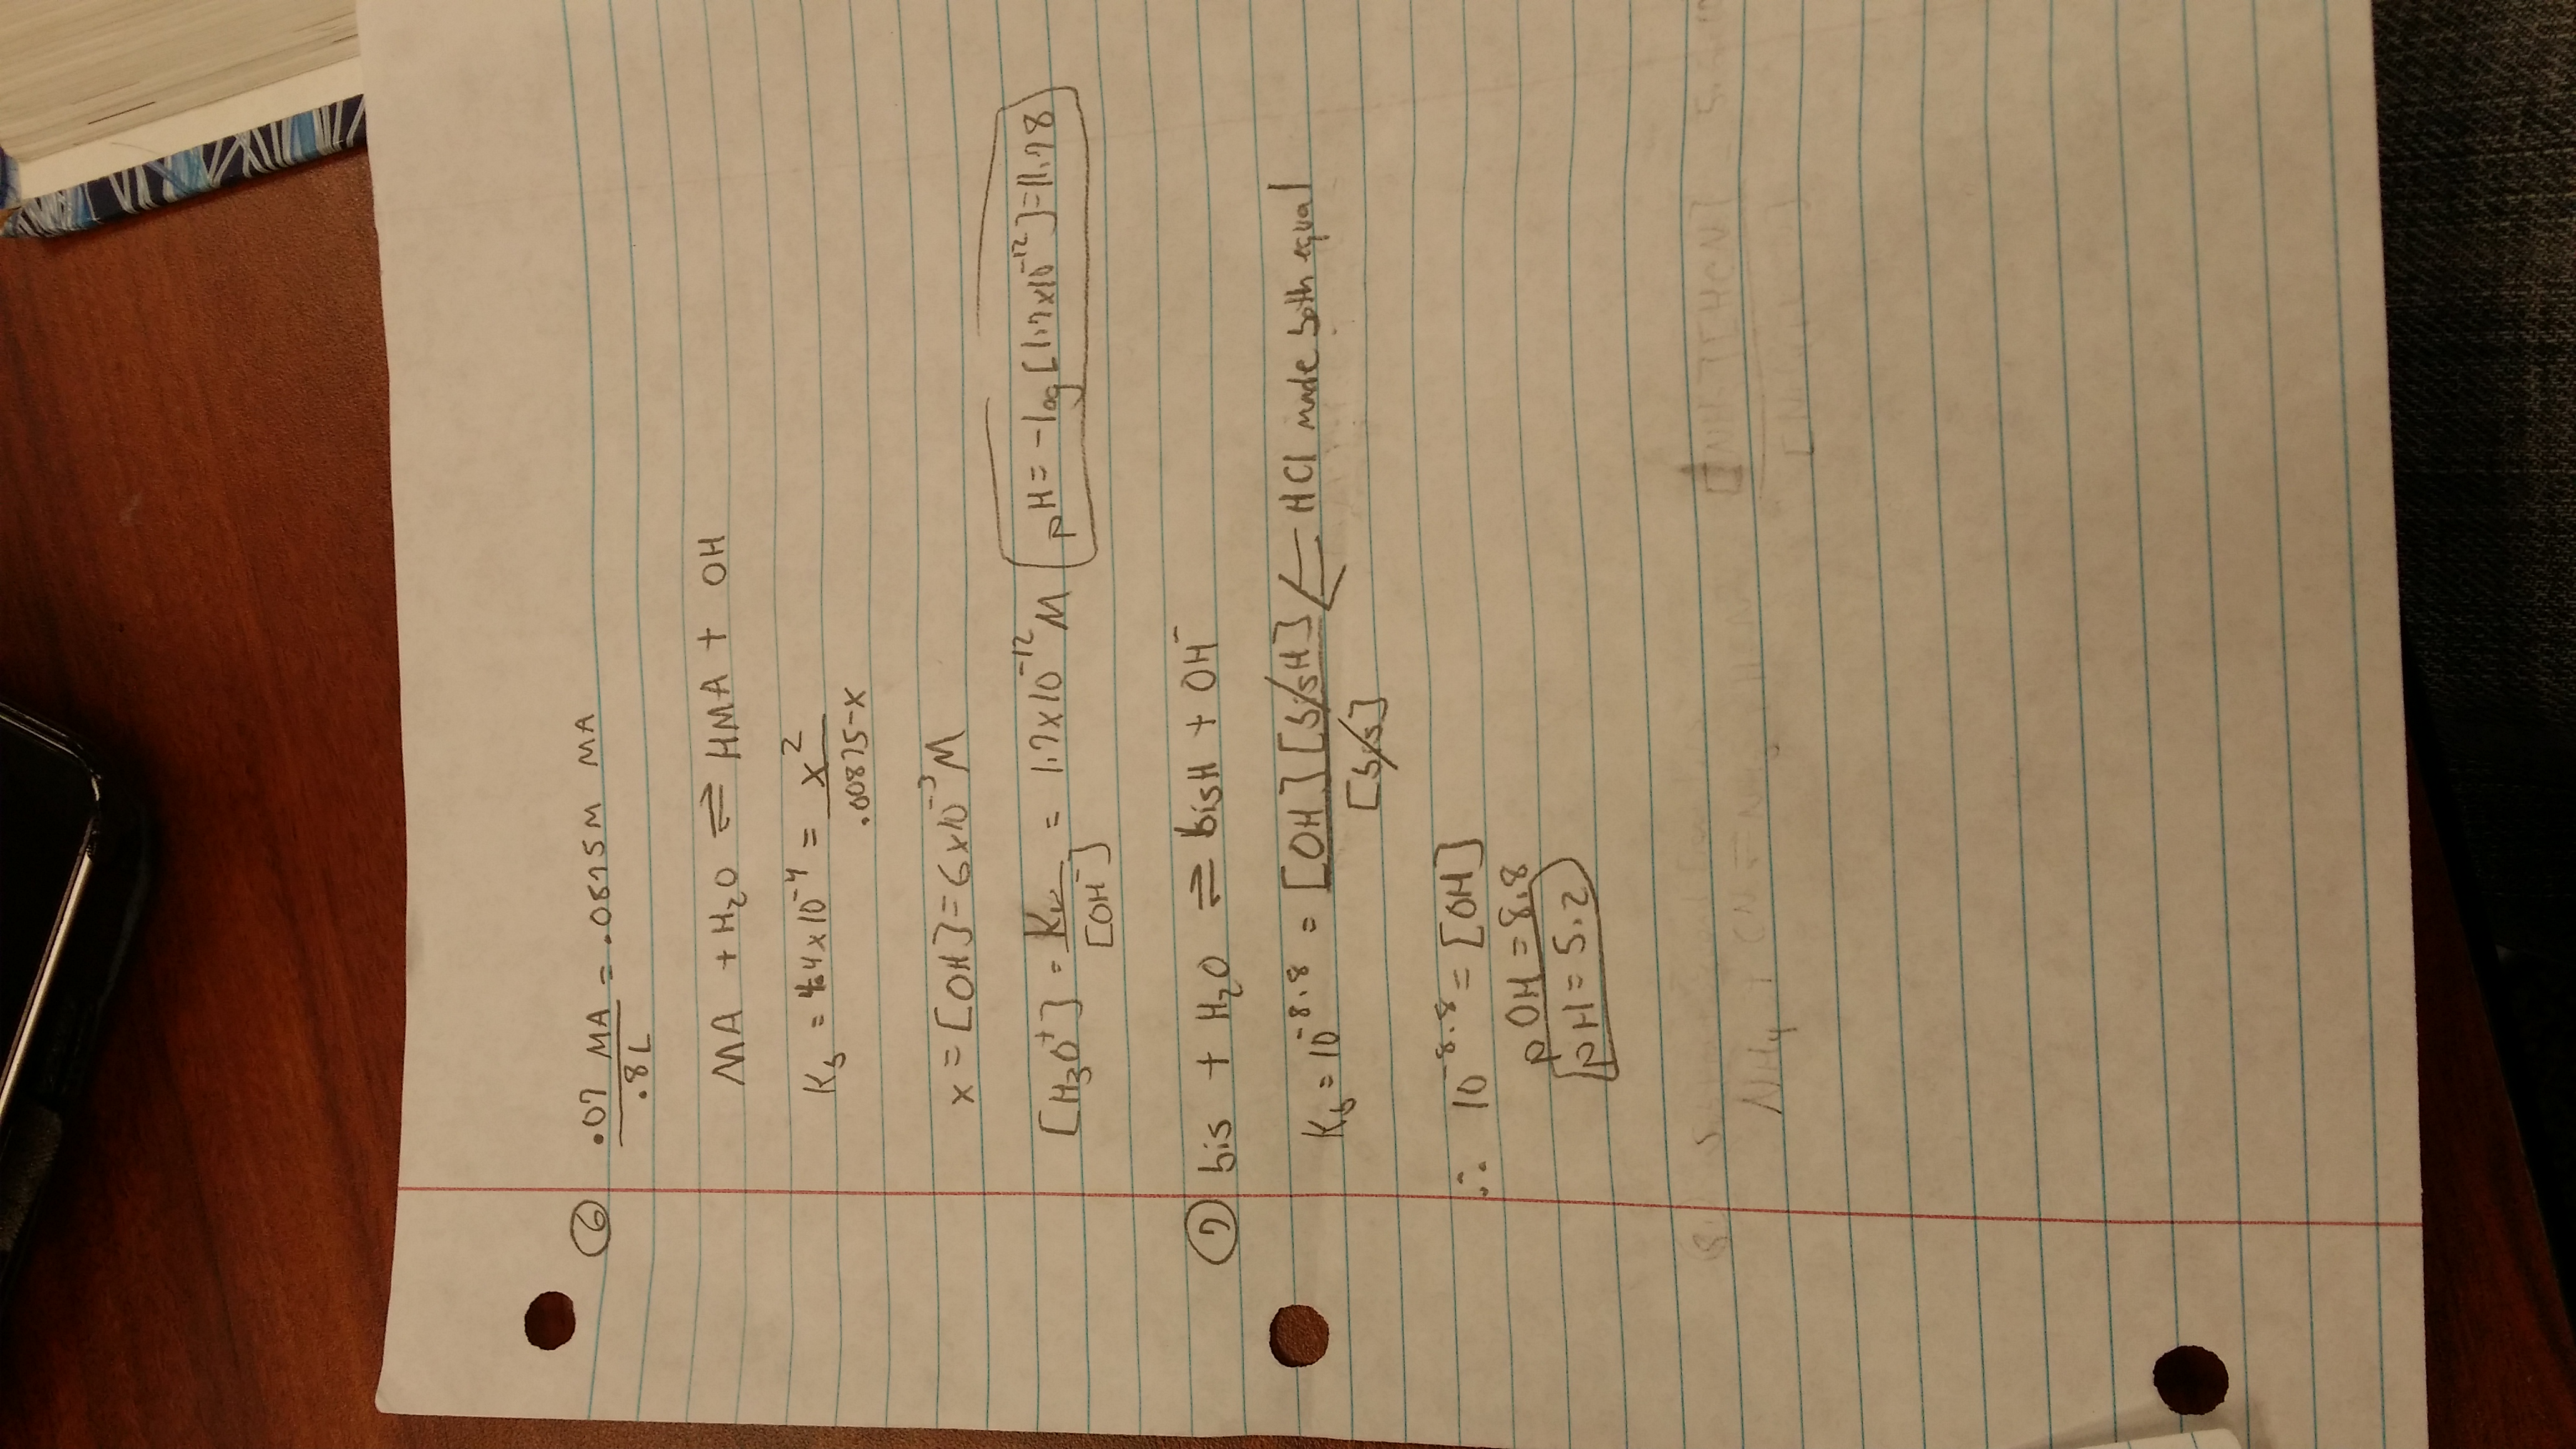 ⑥ .07 MA / .8 L = .0875M MA
MA + H₂O ⇌ HMA + OH
K_b = 4.4 x 10⁻⁴ = x² / .00875-x
x = [OH] = 6 x 10⁻³ M
[H₃O⁺] = K_w / [OH⁻] = 1.7 x 10⁻¹² M pH = -log[1.7 x 10⁻¹²] = 11.78
⑦ bis + H₂O ⇌ bisH + OH⁻
K_b = 10⁻⁸·⁸ = [OH][bisH] / [bis] ← HCl made both equal
∴ 10⁻⁸·⁸ = [OH]
pOH = 8.8
pH = 5.2